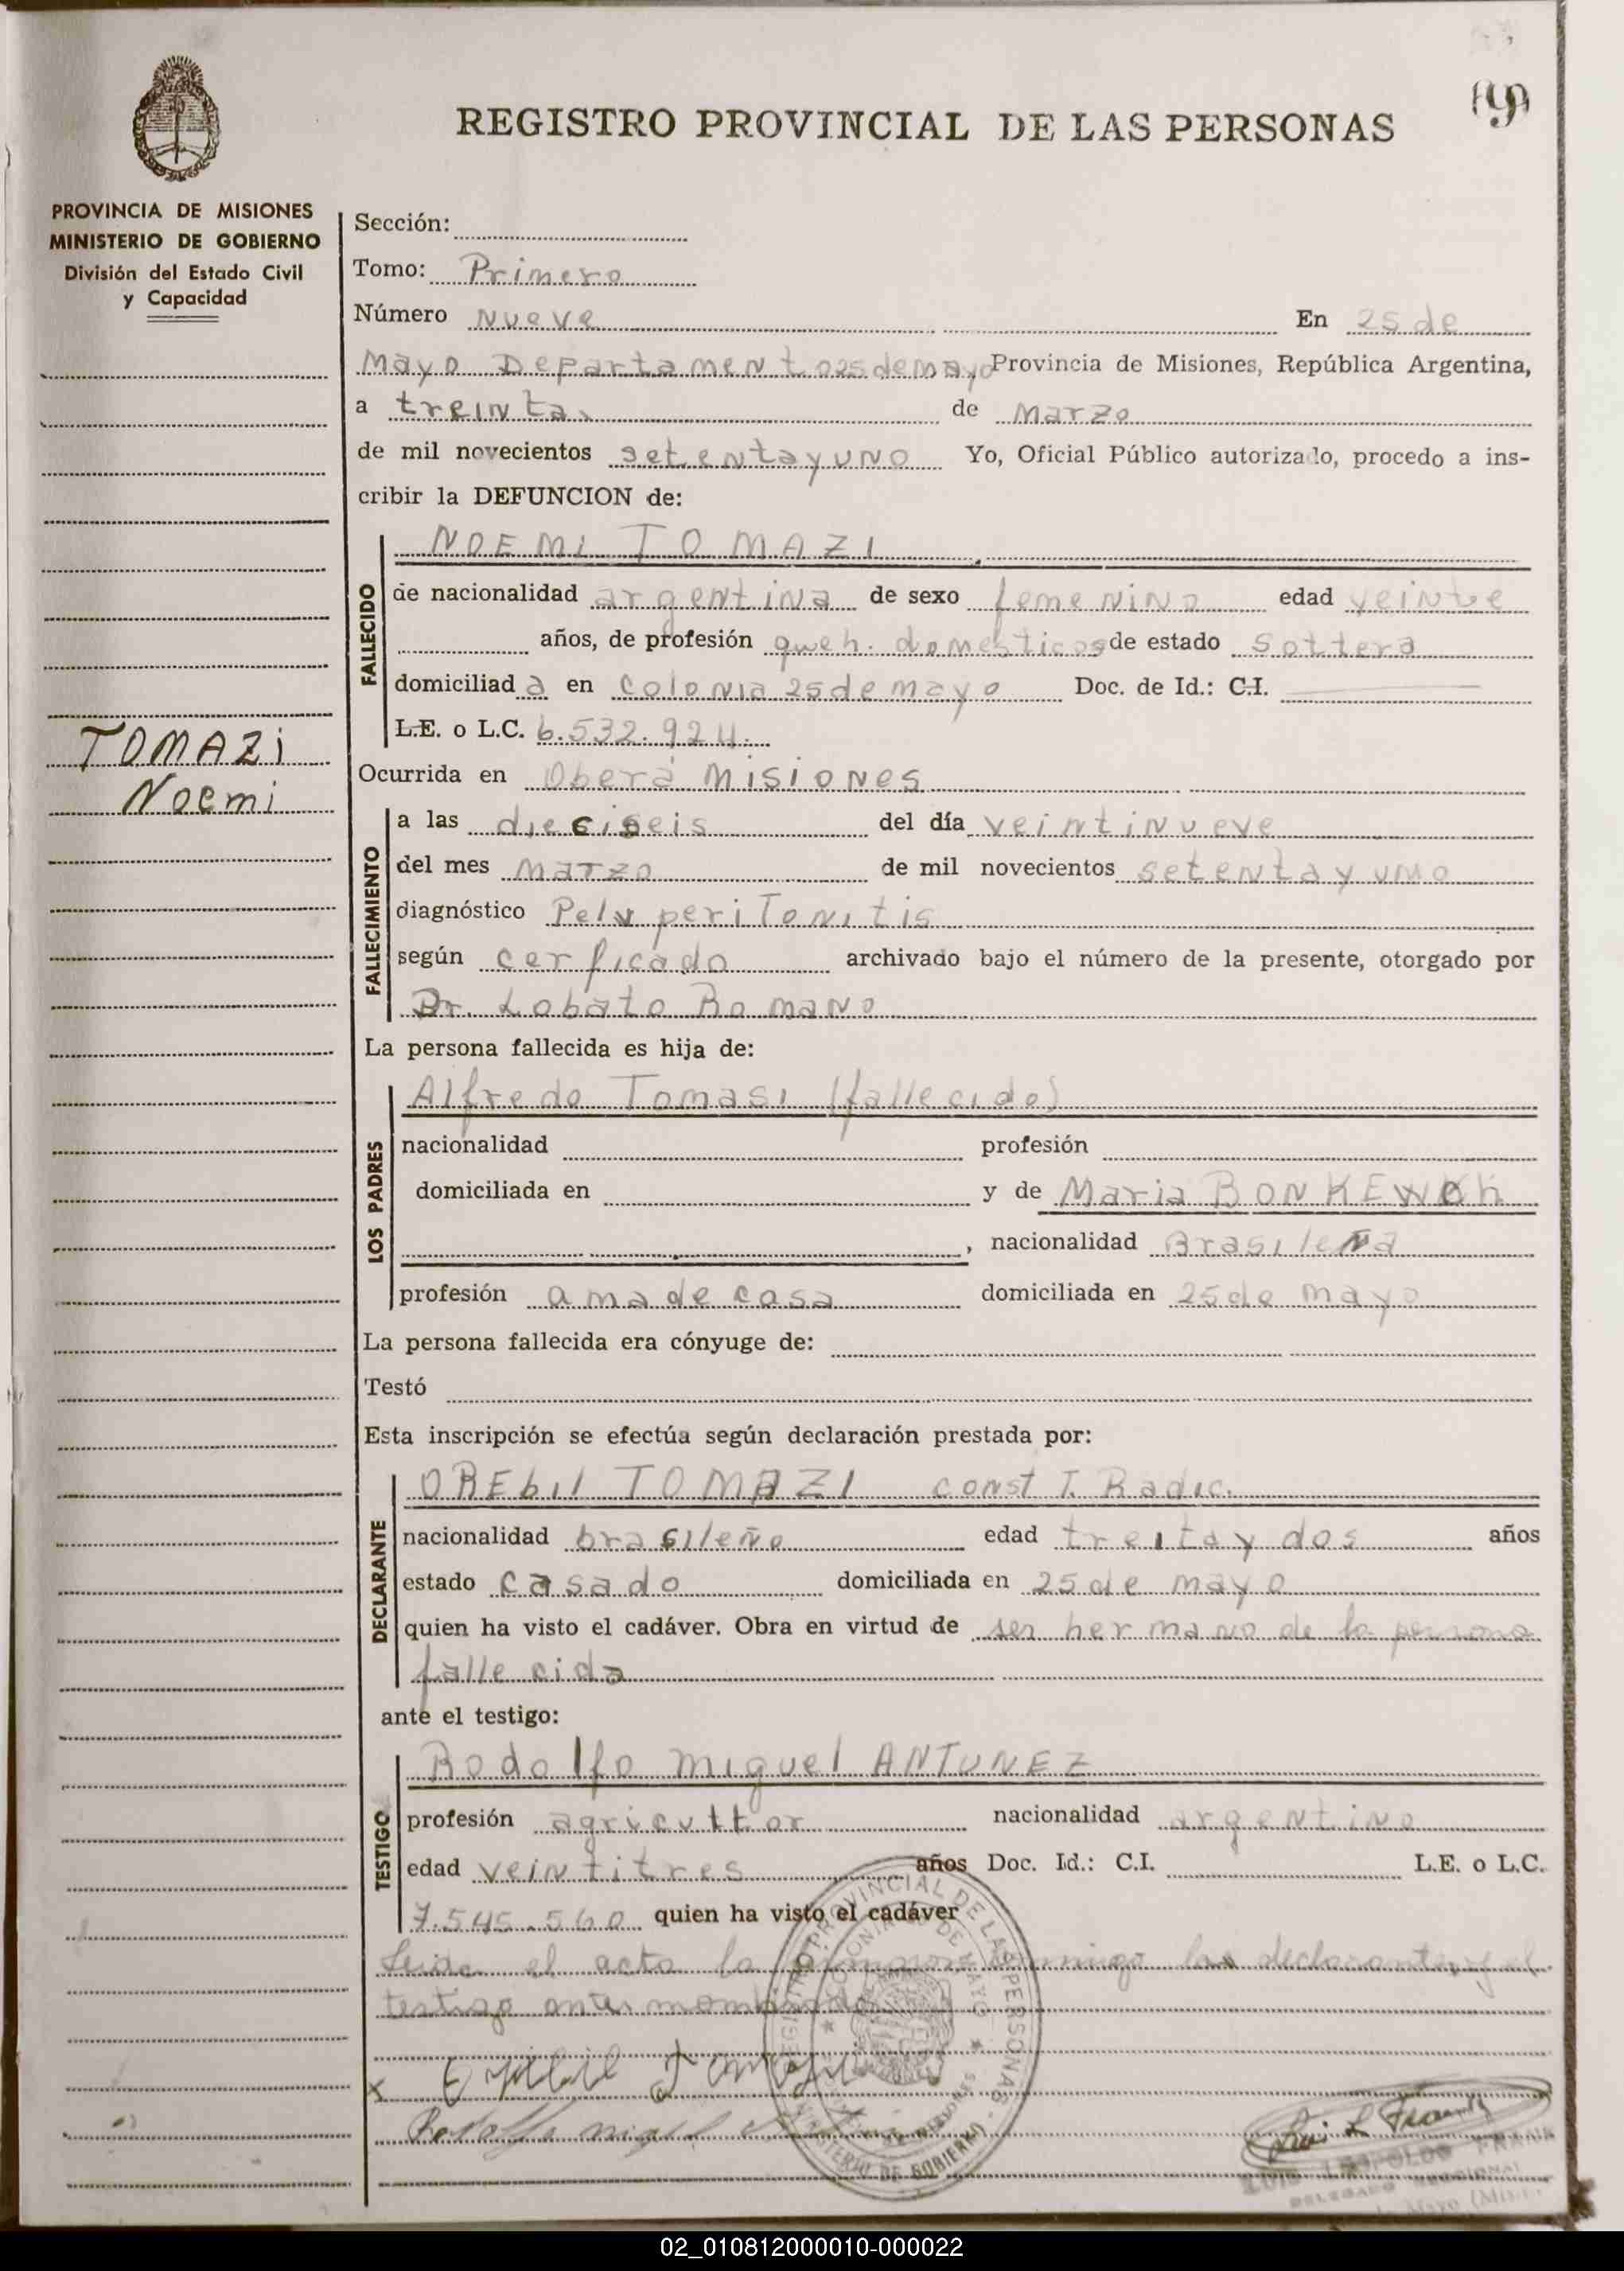 REGISTRO PROVINCIAL DE LAS PERSONAS
PROVINCIA DE MISIONES
MINISTERIO DE GOBIERNO
División del Estado Civil
y Capacidad
TOMAZi
Noemi
Sección:
Tomo: Primero
Número Nueve En 25 de
Mayo Departamento 25 de mayo Provincia de Misiones, República Argentina,
a treinta de Marzo
de mil novecientos setenta y uno Yo, Oficial Público autorizado, procedo a ins-
cribir la DEFUNCION de:
NOEMI TOMAZI
FALLECIDO
de nacionalidad argentina de sexo femenino edad veinte
años, de profesión queh. domésticos de estado soltera
domiciliad a en Colonia 25 de mayo Doc. de Id.: C.I.
L.E. o L.C. 6.532.924.
Ocurrida en Oberá Misiones
FALLECIMIENTO
a las dieciseis del día veintinueve
del mes Marzo de mil novecientos setenta y uno
diagnóstico Pelv peritonitis
según cerficado archivado bajo el número de la presente, otorgado por
Dr. Lobato Romano
La persona fallecida es hija de:
LOS PADRES
Alfredo Tomasi (fallecido)
nacionalidad profesión
domiciliada en y de Maria
, nacionalidad Brasileña
profesión ama de casa domiciliada en 25 de mayo
La persona fallecida era cónyuge de:
Testó
Esta inscripción se efectúa según declaración prestada por:
DECLARANTE
OREbil TOMAZI const T. Radic.
nacionalidad brasileño edad treita y dos años
estado casado domiciliada en 25 de mayo
quien ha visto el cadáver. Obra en virtud de ser hermano de la persona
fallecida
ante el testigo:
TESTIGO
Rodolfo miguel ANTUNEZ
profesión agricultor nacionalidad argentino
edad veintitres años Doc. Id.: C.I. L.E. o L.C.
7.545.560 quien ha visto el cadáver
Leida el acta la firmaron conmigo declarante y el
testigo antes nombrado
x
REGISTRO PROVINCIAL DE LAS PERSONAS
MINISTERIO DE GOBIERNO
LUIS LEOPOLDO FRANK
02_010812000010-000022